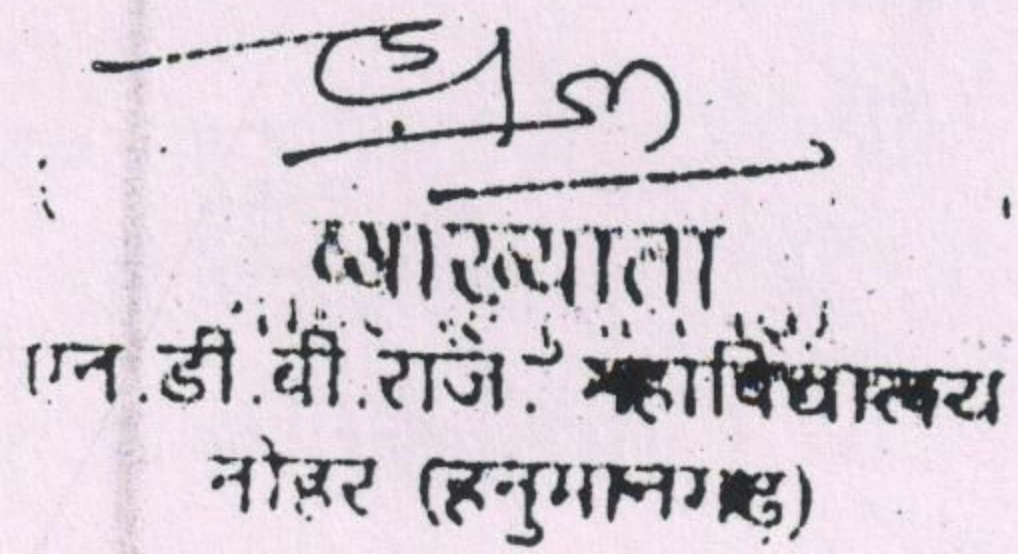 व्याख्याता
एन.डी.बी.राज. महाविद्यालय
नोहर (हनुमानगढ़)